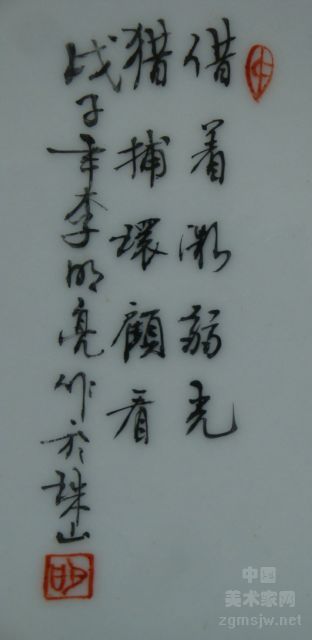 借着微弱光
猎捕環顧看
戊子年李明亮作於珠山
明
中国
美术家网
zgmsjw.net